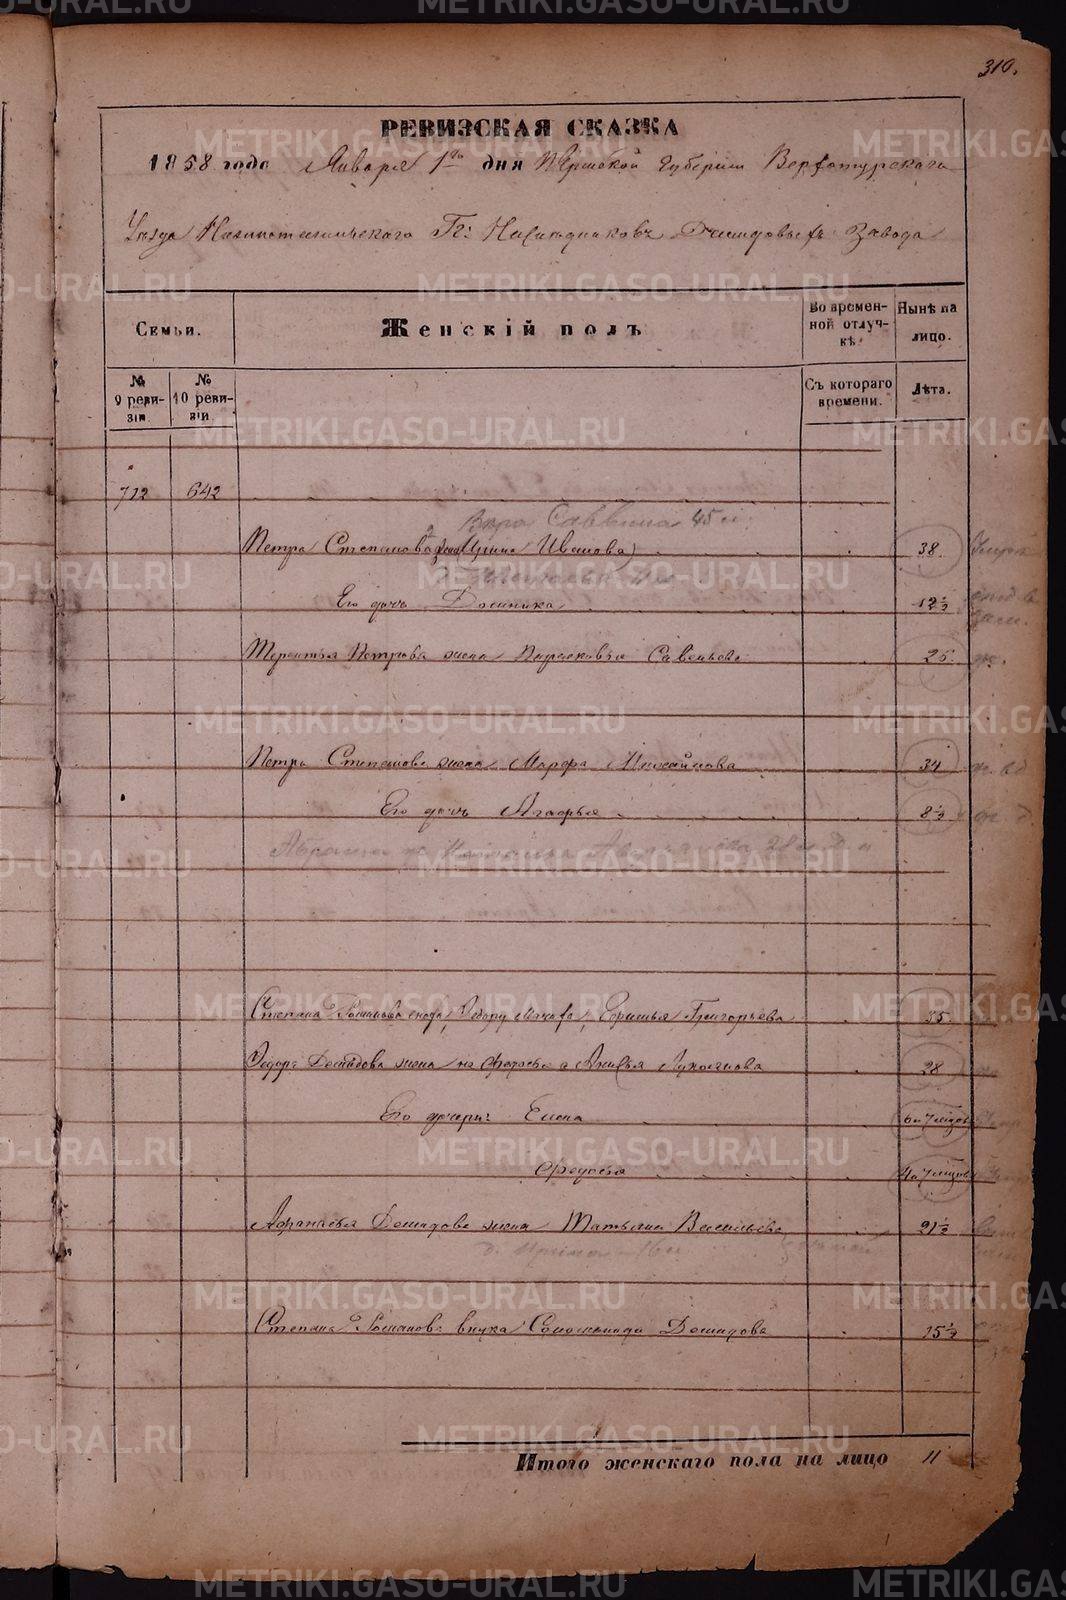 310.
РЕВИЗСКАЯ СКАЗКА
1858 года Января 1го дня Пермской губернiи Верхотурскаго
Уѣзда Гг: Наслѣдниковъ Демидовыхъ Завода
Семьи.
Женскiй полъ
Во временной отлучкѣ
Нынѣ на лицо.
№ 9 ревизiи.
№ 10 ревизiи
Съ котораго времени.
Лѣта.
712 642
Вѣра Саввина 45
Петра Степанова жена Ирина Иванова 38.
Его дочь Домника 12½
Терентья Петрова жена Парасковья Савельева 26.
Петра Степанова жена Марфа Михайлова 34
Его дочь Агафья 8½
Наталья 28
Степана Романова сноха, Федору мачиха, Ефимья Григорьева 35
Федора Демидова жена Анисья Лукоянова 28
Его дочери: Елена 6 и 7 мѣсяц
Федосья 4 и 7 мѣсяцов
Афанасья Демидова жена Татьяна Васильева 21½
д. Ирина 16
Степана Романова внука Соломонида Демидова 15½
Итого женскаго пола на лицо 11
METRIKI.GASO-URAL.RU